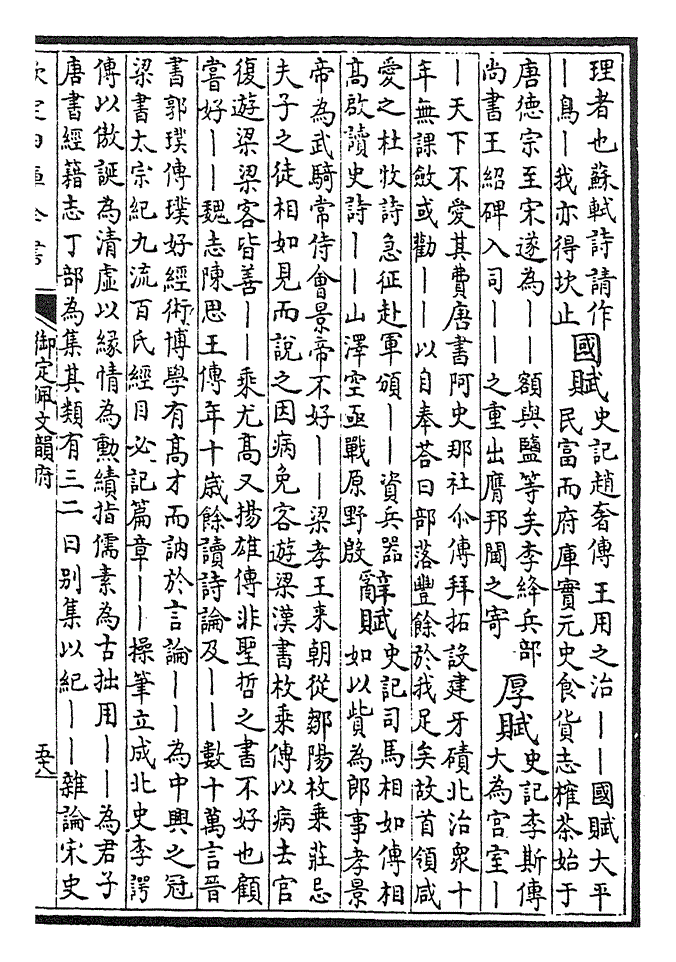 理者也蘇軾詩請作
—鳥—我亦得坎止
國賦
史記趙奢傳王用之治——國賦大平
民富而府庫實元史食貨志榷茶始于
唐德宗至宋遂為——額與鹽等矣李絳兵部
尚書王紹碑入司——之重出膺邦閫之寄
厚賦
史記李斯傳
大為宮室—
—天下不愛其費唐書阿史那社尒傳拜拓設建牙磧北治衆十
年無課斂或勸——以自奉荅曰部落豐餘於我足矣故首領咸
愛之杜牧詩急征赴軍頒——資兵器
高啟讀史詩——山澤空亟戰原野殷
辭賦
史記司馬相如傳相
如以貲為郎事孝景
帝為武騎常侍會景帝不好——梁孝王来朝從鄒陽枚乗莊忌
夫子之徒相如見而說之因病免客遊梁漢書枚乗傳以病去官
復遊梁梁客皆善——乗尤高又揚雄傳非聖哲之書不好也顧
嘗好——魏志陳思王傳年十歲餘讀詩論及——數十萬言晉
書郭璞傳璞好經術博學有高才而訥於言論——為中興之冠
梁書太宗紀九流百氏經目必記篇章——操筆立成北史李諤
傳以傲誕為清虛以緣情為勲績指儒素為古拙用——為君子
唐書經籍志丁部為集其類有三二曰别集以紀——雜論宋史
欽定四庫全書
御定佩文韻府